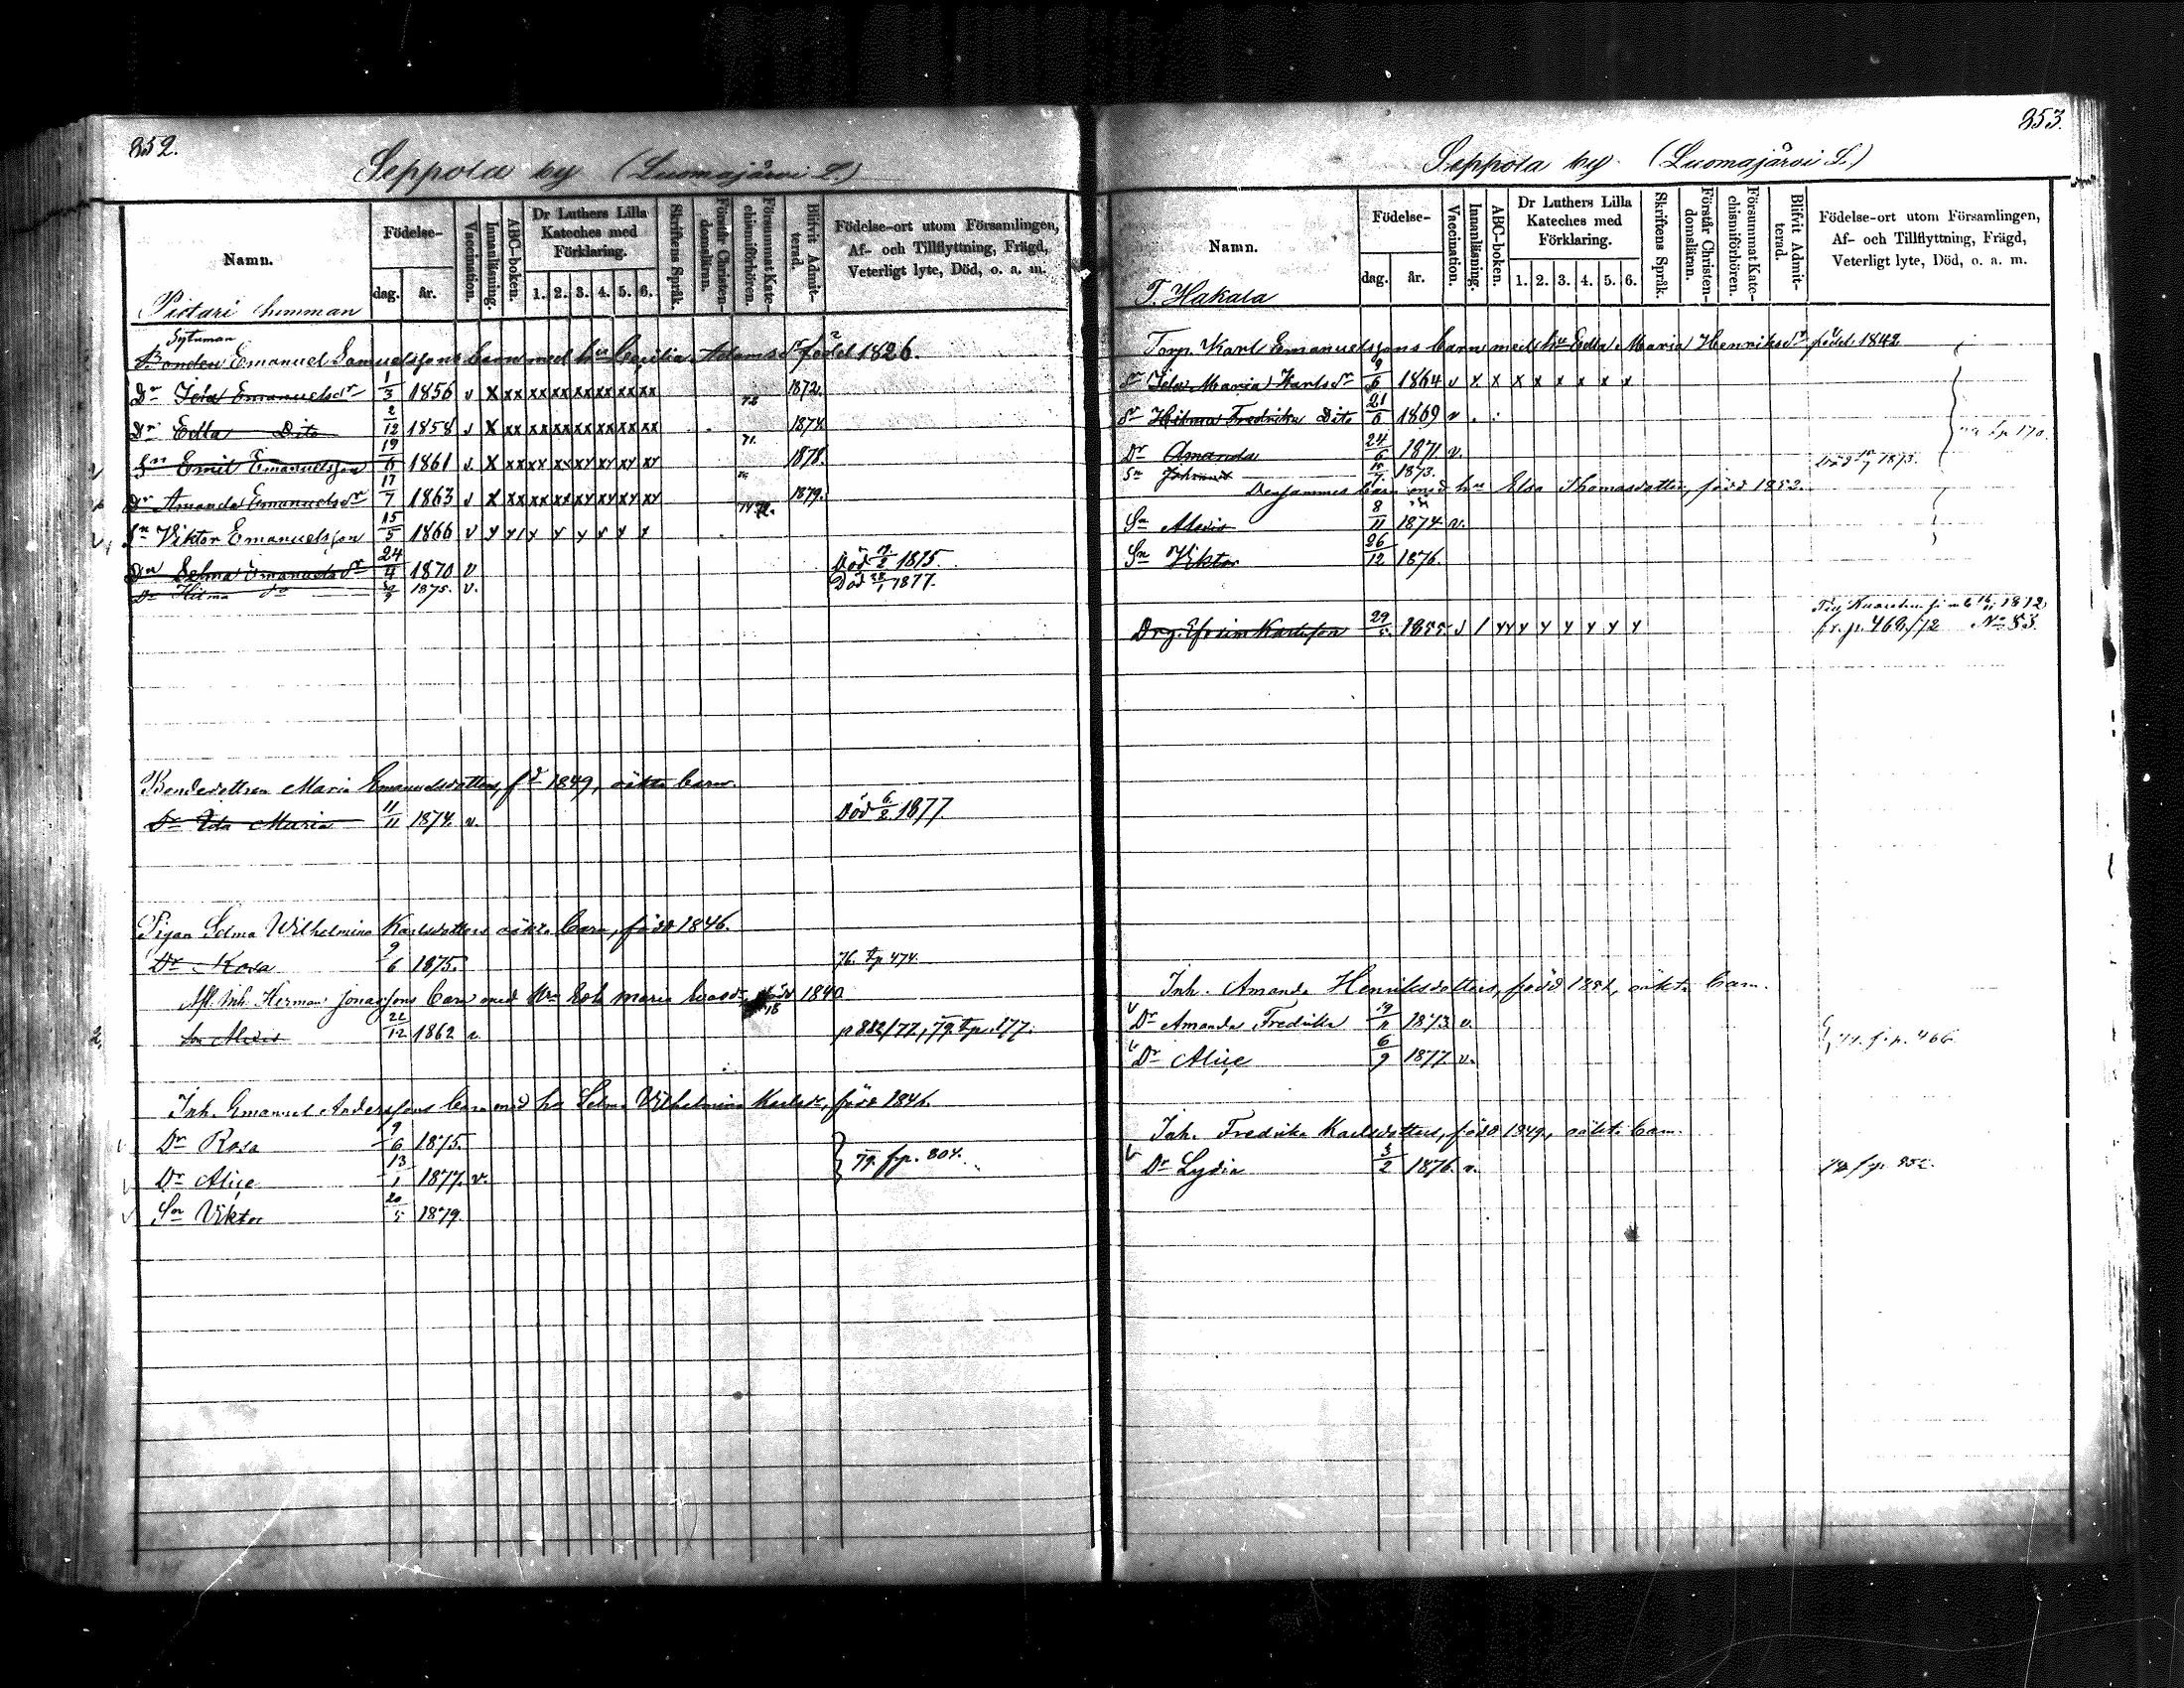 852.
Seppola by (Luomajärvi L.)
Namn.
Födelse-
dag.
år.
Vaccination.
Innanläsning.
ABC-boken.
Dr Luthers Lilla Kateches med Förklaring.
1. 2. 3. 4. 5. 6.
Skriftens Språk.
Förstår Christendomsläran.
Försummat Katechismiförhören.
Blifvit Admitterad.
Födelse-ort utom Församlingen,
Af- och Tillflyttning, Frägd,
Veterligt lyte, Död, o. a. m.
Pietari hemman
Sytuman
Bonden Emanuel Samuelssons barn med hu Cecilia Adamsdr född 1826.
Dr Ida Emanuelsdr 1/3 1856 v x xx xx xx xx xx xx xx 1872.
Dr Edla Dito 2/12 1858 v x xx xx xx xx xx xx xx 1874
Sn Emil Emanuelsson 19/6 1861 v. x xx xx xx xx xx xx xx 1878.
Dr Amanda Emanuelsdr 17/7 1863 v x xx xx xx xx xx xx xx 1879.
Sn Viktor Emanuelsson 15/5 1866 v
Dr Selma Emanuelsdr 24/4 1870 v Död 1875.
Dr Hilma do 1875. v. Död 1877.
Bondedottren Maria Emanuelsdotters, fd 1849, oäkta barn.
Dr Ida Maria 11/11 1874. v. Död 6/2 1877.
Pigan Selma Wilhelmina Karlsdotters oäkta barn, född 1846.
Dr Rosa 9/6 1875. 76. tp 474.
Afl. Inh. Herman Jonassons barn med född 1840
Son Alexis 21/12 1862 v. p 882/77, 79. tp. 177.
Inh. Emanuel Anderssons barn med hu Selma Vilhelmina Karlsdr, född 1846.
Dr Rosa 9/6 1875.
Dr Aliçe 13/1 1877. v. 79. fp. 804.
Sn Viktor 20/5 1879.
853.
Seppola by (Luomajärvi L.)
Namn.
Födelse-
dag.
år.
Vaccination.
Innanläsning.
ABC-boken.
Dr Luthers Lilla Kateches med Förklaring.
1. 2. 3. 4. 5. 6.
Skriftens Språk.
Förstår Christendomsläran.
Försummat Katechismiförhören.
Blifvit Admitterad.
Födelse-ort utom Församlingen,
Af- och Tillflyttning, Frägd,
Veterligt lyte, Död, o. a. m.
T. Hakala
Torp. Karl Emanuelssons barn med hu Edla Maria Henriksdr född 1842
Dr Ida Maria Karlsdr 9/6 1864 v x x x x x x x x
Dr Hilma Fredrika Dito 21/6 1869 v
Dr Amanda 24/6 1871 v. tp 170.
Sn 1873. Död 1873.
Densammes barn med hu Elsa Thomasdotter, född 1852.
Sn Alexis 8/11 1874 v.
Sn Viktor 26/12 1876.
Drg. Efraim Karlsson 29/5 1855 fr. p. 468/72 No 53.
Inh. Amanda Henriksdotters, född oäkta barn.
Dr Amanda Fredrika 1873 v.
Dr Aliçe 6/9 1877. v. f. p. 466.
Inh. Fredrika Karlsdotters, född 1849, oäkta barn.
Dr Lydia 3/2 1876 v.